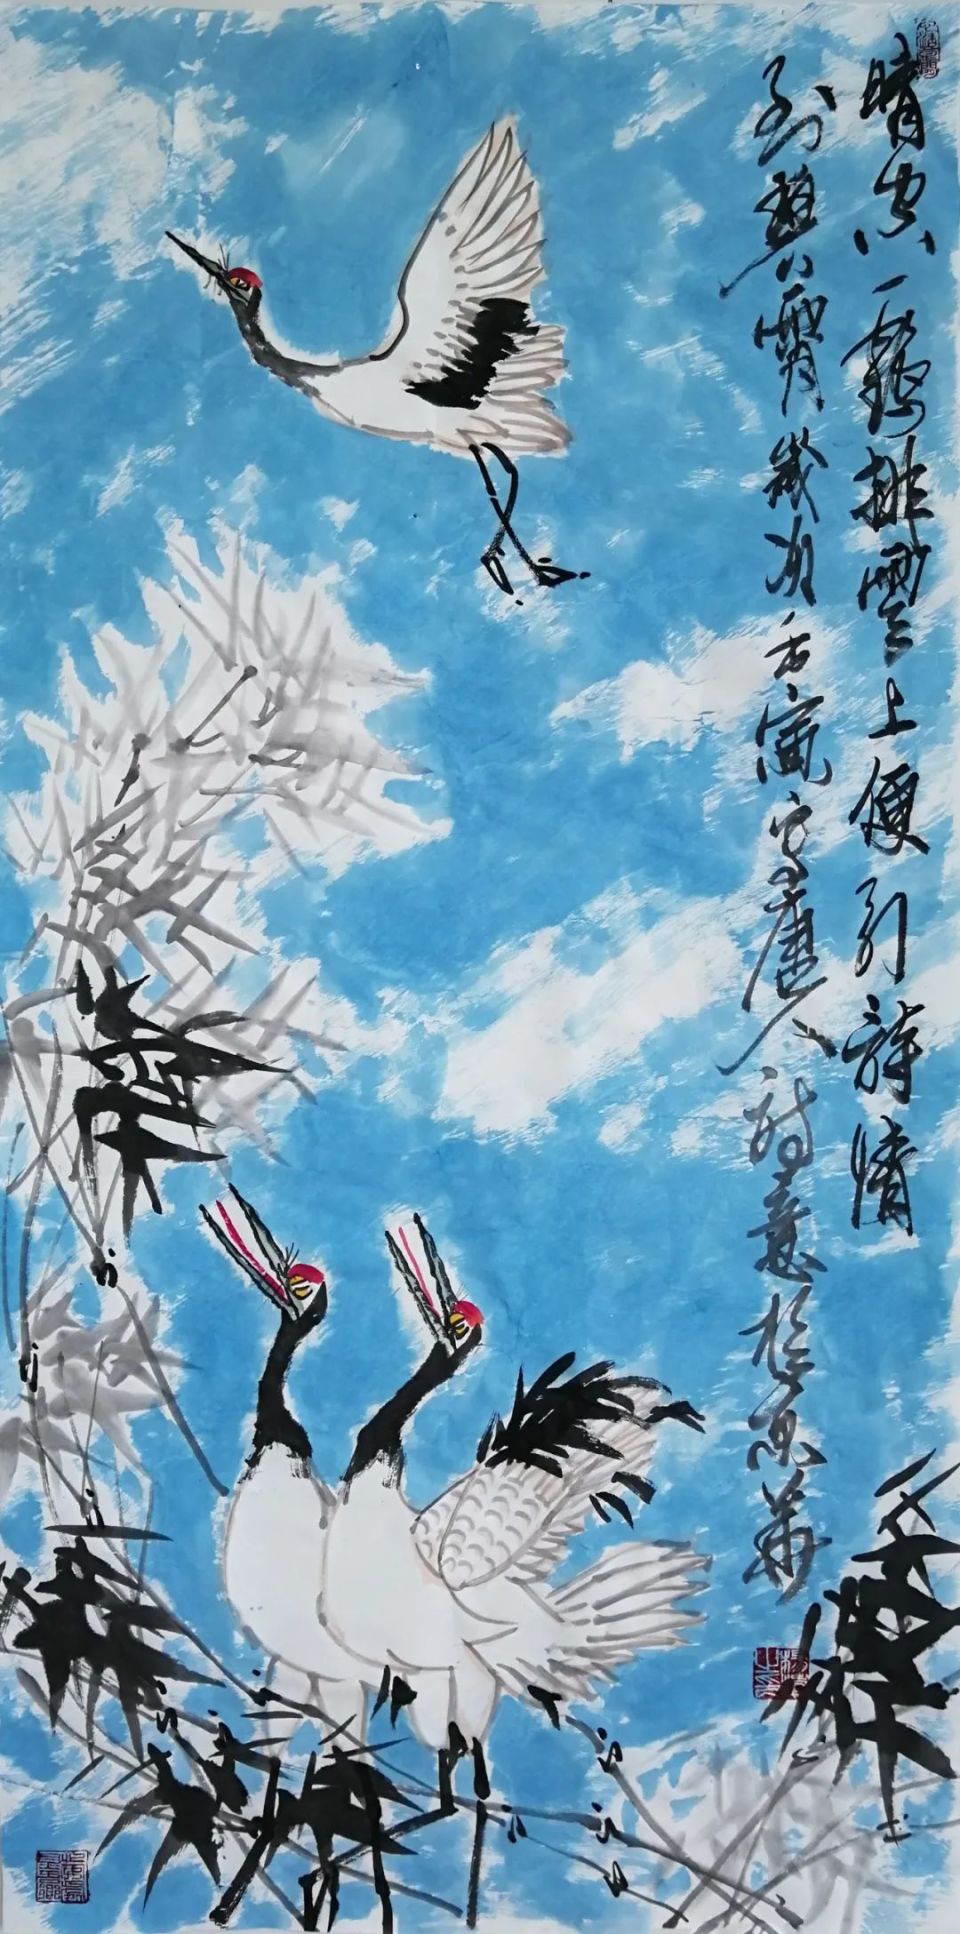 晴空一鹤排云上便引诗情
到碧霄岁次壬寅写唐人诗意于京华